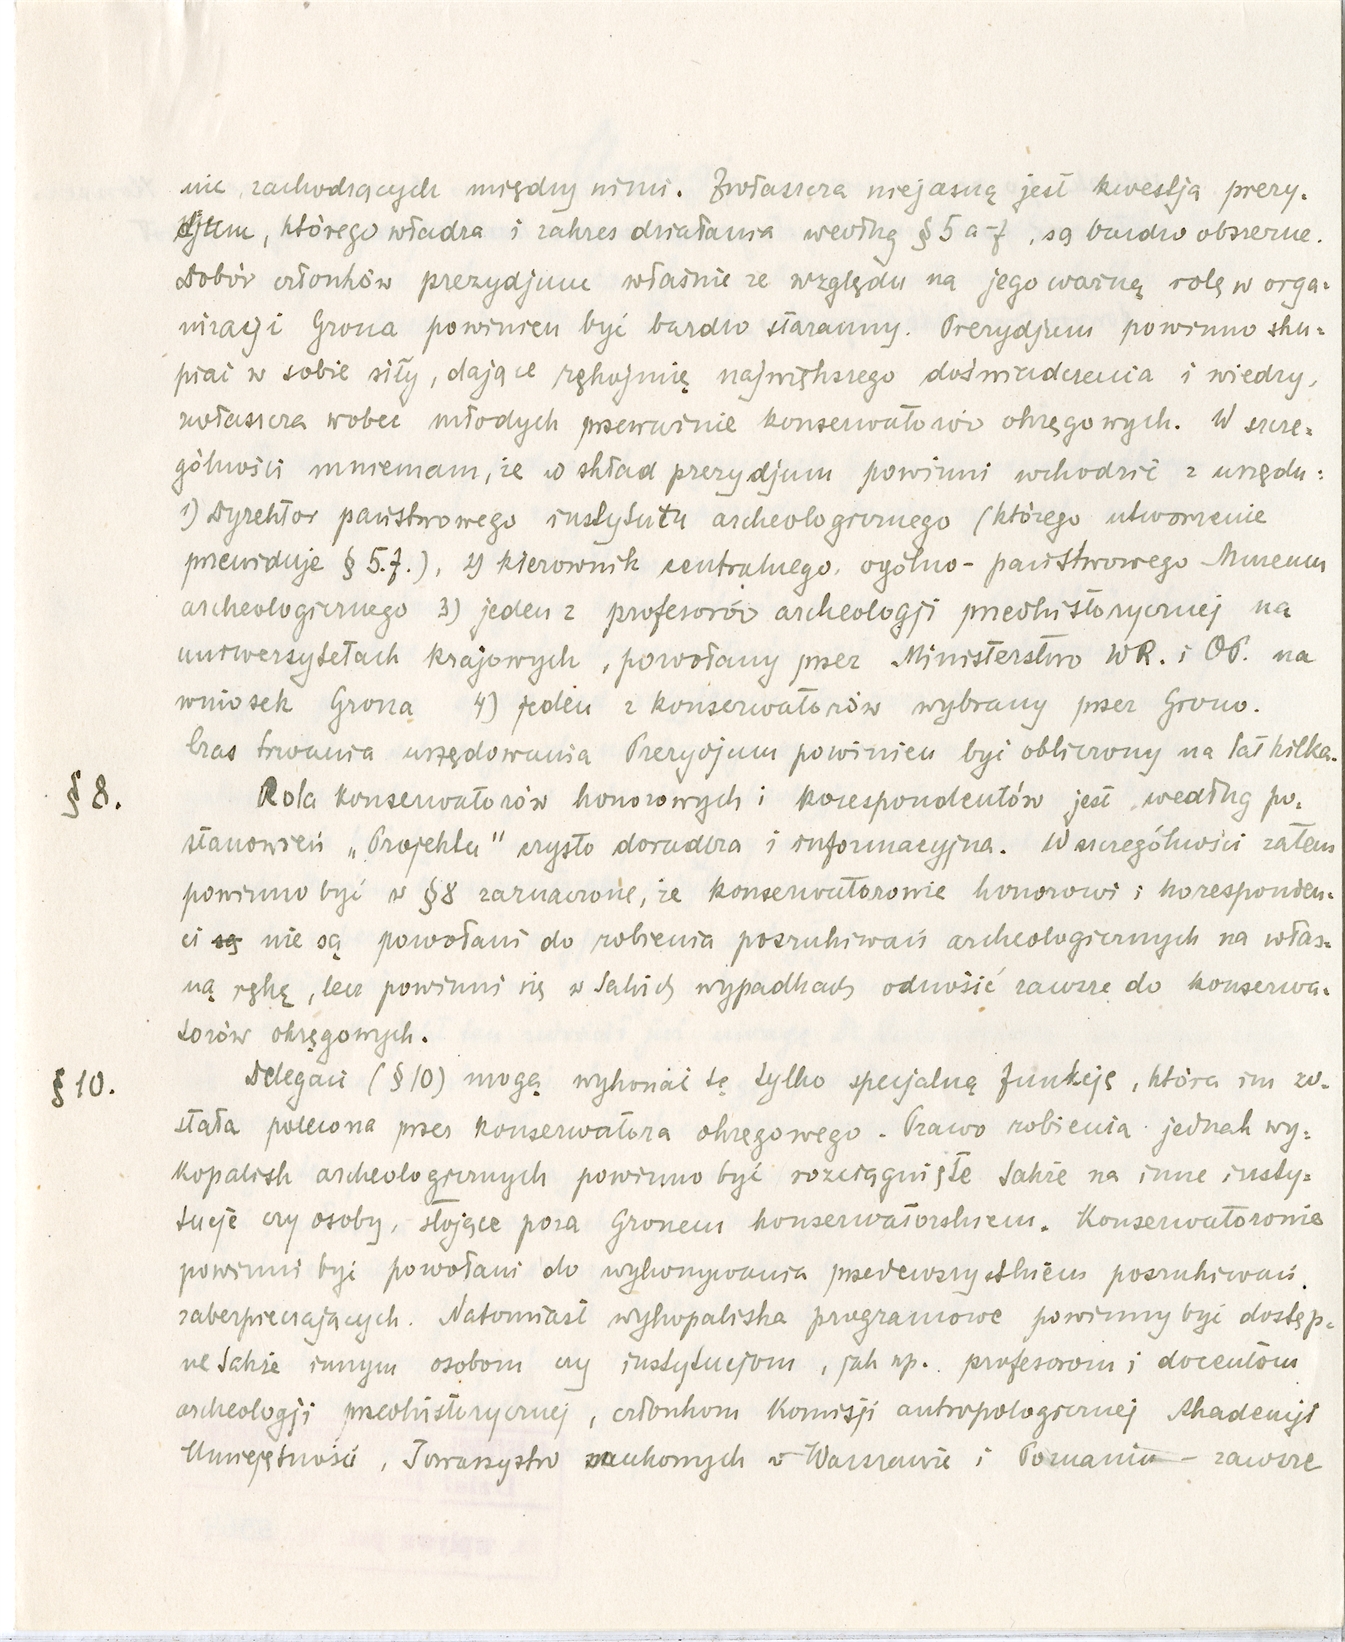 nic zachodzących między nimi. Zwłaszcza niejasną jest kwestja prezy-
djum, którego władza i zakres działania według § 5 a-f, są bardzo obszerne.
Dobór członków prezydjum właśnie ze względu na jego ważną rolę w orga-
nizacji Grona powinien być bardzo staranny. Prezydjum powinno sku-
piać w sobie siły, dające rękojmię największego doświadczenia i wiedzy,
zwłaszcza wobec młodych przeważnie konserwatorów okręgowych. W szcze-
gólności mniemam, że w skład prezydjum powinni wchodzić z urzędu:
1) Dyrektor państwowego instytutu archeologicznego (którego utworzenie
przewiduje § 5.f.), 2) kierownik centralnego, ogólno-państwowego Muzeum
archeologicznego 3) jeden z profesorów archeologji przedhistorycznej na
uniwersytetach krajowych, powołany przez Ministerstwo WR. i OP. na
wniosek Grona 4) jeden z konserwatorów wybrany przez Grono.
Czas trwania urzędowania Prezydjum powinien być obliczony na lat kilka.
§ 8. Rola konserwatorów honorowych i korespondentów jest według po-
stanowień „Projektu" czysto doradcza i informacyjna. W szczególności zatem
powinno być w § 8 zaznaczone, że konserwatorowie honorowi i koresponden-
ci są nie są powołani do robienia poszukiwań archeologicznych na włas-
ną rękę, lecz powinni się w takich wypadkach odnosić zawsze do konserwa-
torów okręgowych.
§ 10. Delegaci (§ 10) mogą wykonać tę tylko specjalną funkcję, która im zo-
stała polecona przez konserwatora okręgowego. Prawo robienia jednak wy-
kopalisk archeologicznych powinno być rozciągnięte także na inne insty-
tucje czy osoby, stojące poza Gronem konserwatorskiem. Konserwatorowie
powinni być powołani do wykonywania przedewszystkiem poszukiwań
zabezpieczających. Natomiast wykopaliska programowe powinny być dostęp-
ne także innym osobom czy instytucjom, jak np. profesorom i docentom
archeologji przedhistorycznej, członkom Komisji antropologicznej Akademji
Umiejętności, Towarzystw naukowych w Warszawie i Poznaniu – zawsze